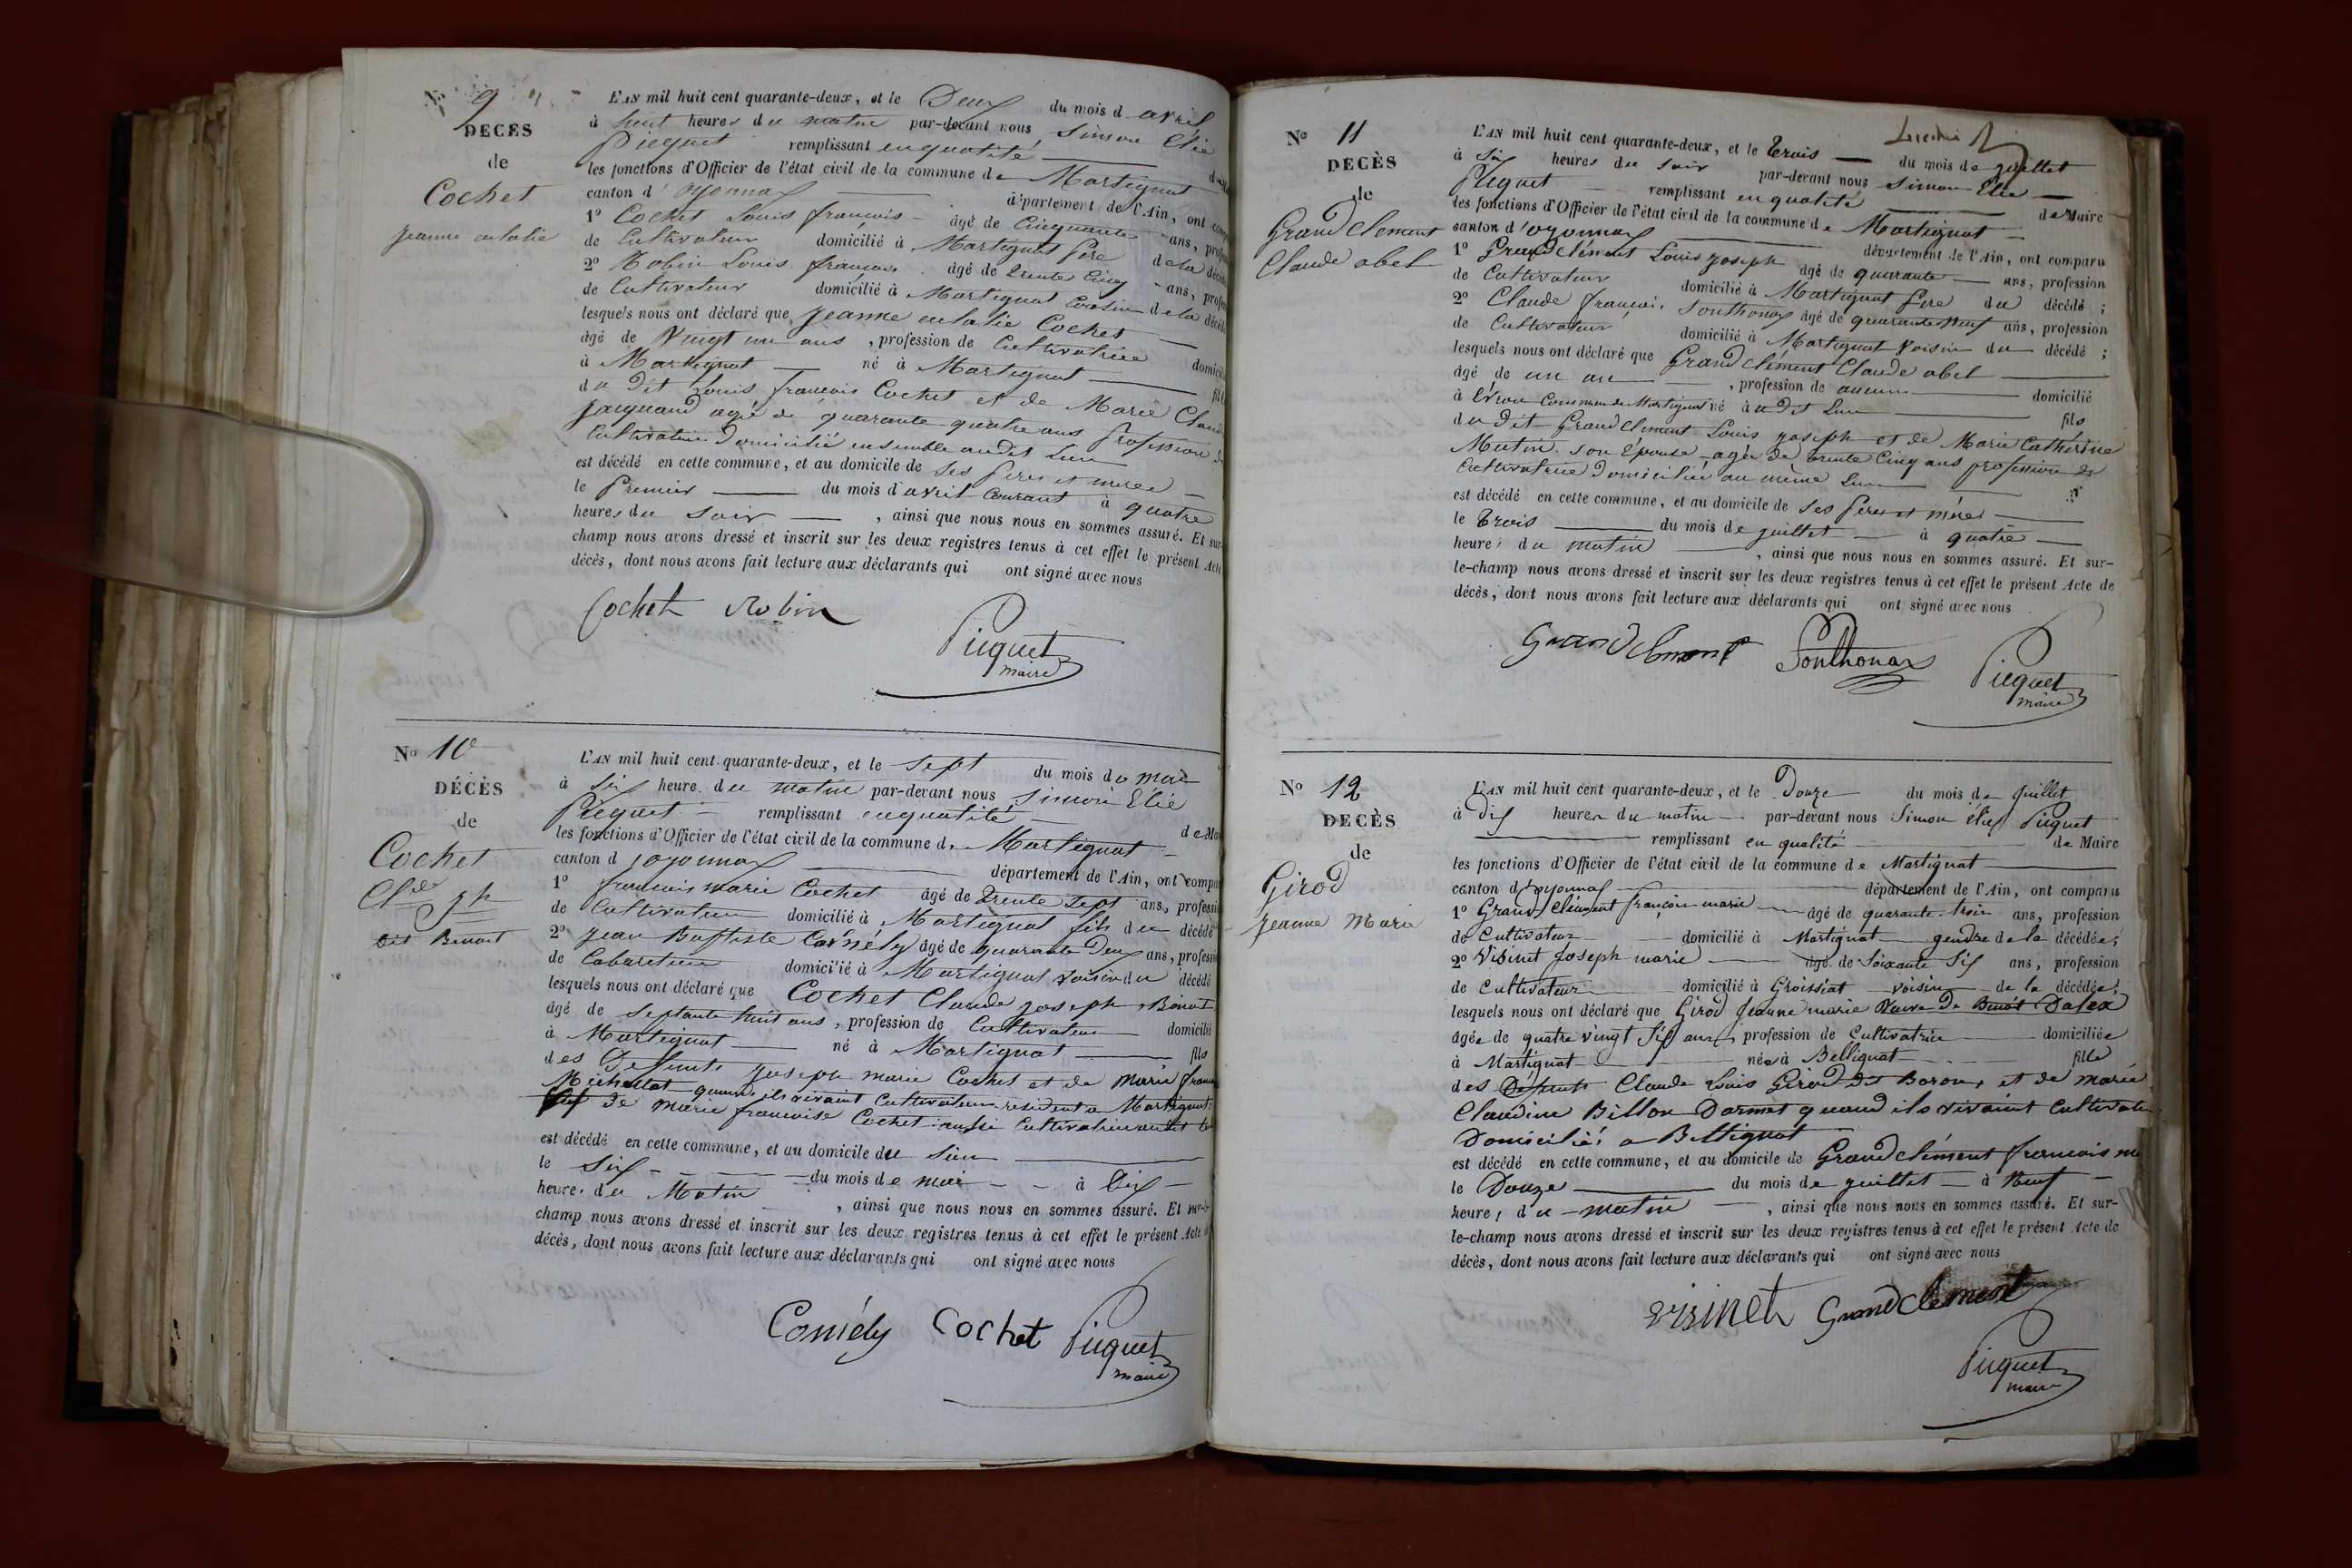 N° 9
DÉCÈS
de
Cochet
jeanne eulalie
L'AN mil huit cent quarante-deux, et le Deux du mois d avril
à huit heures du matin par-devant nous Simon Elie
Picquet remplissant en qualité
les fonctions d'Officier de l'état civil de la commune de Martignat
canton d'oyonnax département de l'Ain, ont
1° Cochet Louis françois âgé de Cinquante ans,
de Cultivateur domicilié à Martignat Père de la
2° Robin Louis françois âgé de trente Cinq ans,
de Cultivateur domicilié à Martignat Cousin de la
lesquels nous ont déclaré que jeanne eulalie Cochet
âgé de Vingt un ans, profession de Cultivatrice
à Martignat né à Martignat
du dit Louis françois Cochet et de Marie
jacquand agée de quarante quatre ans profession
Cultivatrice Domicilié ensemble audit Lieu
est décédé en cette commune, et au domicile de ses Peres et mères
le Premier du mois d'avril Courant à quatre
heures du soir, ainsi que nous nous en sommes assuré. Et sur-
champ nous avons dressé et inscrit sur les deux registres tenus à cet effet le présent Acte
décès, dont nous avons fait lecture aux déclarants qui ont signé avec nous
Cochet Robin
Picquet
maire
N° 10
DÉCÈS
de
Cochet
Cl de jh
dit Benoit
L'AN mil huit cent quarante-deux, et le sept du mois de mai
à six heure du matin par-devant nous Simon Elie
Picquet remplissant en qualité
les fonctions d'Officier de l'état civil de la commune d. Martignat
canton d oyonnax département de l'Ain, ont
1° francois marie Cochet âgé de trente sept ans,
de Cultivateur domicilié à Martignat fils du décédé
2° jean Baptiste Cornély âgé de quarante Deux ans,
de Cabaretier domicilié à Martignat voisin du décédé
lesquels nous ont déclaré que Cochet Claude joseph, Benoit
âgé de septante huit ans, profession de Cultivateur
à Martignat né à Martignat fils
des Defunts joseph marie Cochet et de marie
Michallat quand ils vivaint Cultivateurs resident a Martignat
de marie francoise Cochet aussi Cultivatrice audit
est décédé en cette commune, et au domicile du Sien
le Six du mois de mai à Dix
heure. du Matin, ainsi que nous nous en sommes assuré. Et
champ nous avons dressé et inscrit sur les deux registres tenus à cet effet le présent Acte
décès, dont nous avons fait lecture aux déclarants qui ont signé avec nous
Cornély Cochet Picquet
maire
N° 11
DECÈS
de
Grand Clement
Claude abel
L'AN mil huit cent quarante-deux, et le trois du mois de juillet
à six heures du soir par-devant nous Simon Elie
Picquet remplissant en qualité de Maire
les fonctions d'Officier de l'état civil de la commune de Martignat
canton d'oyonnax département de l'Ain, ont comparu
1° Grand Clément Louis joseph âgé de quarante ans, profession
de Cultivateur domicilié à Martignat Père du décédé ;
2° Claude françois Southonax âgé de quarante Neuf ans, profession
de Cultivateur domicilié à Martignat Voisin du décédé ;
lesquels nous ont déclaré que Grand Clément Claude abel
âgé de un an, profession de aucune domicilié
à Evron Commune de Martignat né audit Lieu fils
du dit Grand Clément Louis joseph et de Marie Cathérine
Mutin son Epouse agée de trente Cinq ans profession de
Cultivatrice Domiciliée au même Lieu
est décédé en cette commune, et au domicile de ses Peres et mères
le trois du mois de juillet à quatre
heure du matin, ainsi que nous nous en sommes assuré. Et sur-
le-champ nous avons dressé et inscrit sur les deux registres tenus à cet effet le présent Acte de
décès, dont nous avons fait lecture aux déclarants qui ont signé avec nous
Grandclement Southonax Picquet
maire
N° 12
DECÈS
de
Girod
jeanne Marie
L'AN mil huit cent quarante-deux, et le Douze du mois de juillet
à dix heures du matin par-devant nous Simon élie Picquet
remplissant en qualité de Maire
les fonctions d'Officier de l'état civil de la commune de Martignat
canton d'oyonnax département de l'Ain, ont comparu
1° Grand Clément françois marie âgé de quarante-trois ans, profession
de Cultivateur domicilié à Martignat gendre de la décédée ;
2° Visinet Joseph marie âgé de Soixante Six ans, profession
de Cultivateur domicilié à Groissiat voisin de la décédée ;
lesquels nous ont déclaré que Girod jeanne marie Veuve de Benoit Dalex
âgée de quatre vingt Six ans, profession de Cultivatrice domiciliée
à Martignat née à Bellignat fille
des Defunts Claude Louis Girod dit Boron, et de marie
Claudine Billon Darmet quand ils vivaint
Domiciliés a Bellignat
est décédé en cette commune, et au domicile de Grand clément francois
le Douze du mois de juillet à Neuf
heure, du matin, ainsi que nous nous en sommes assuré. Et sur-
le-champ nous avons dressé et inscrit sur les deux registres tenus à cet effet le présent Acte de
décès, dont nous avons fait lecture aux déclarants qui ont signé avec nous
visinet Grandclement
Picquet
maire